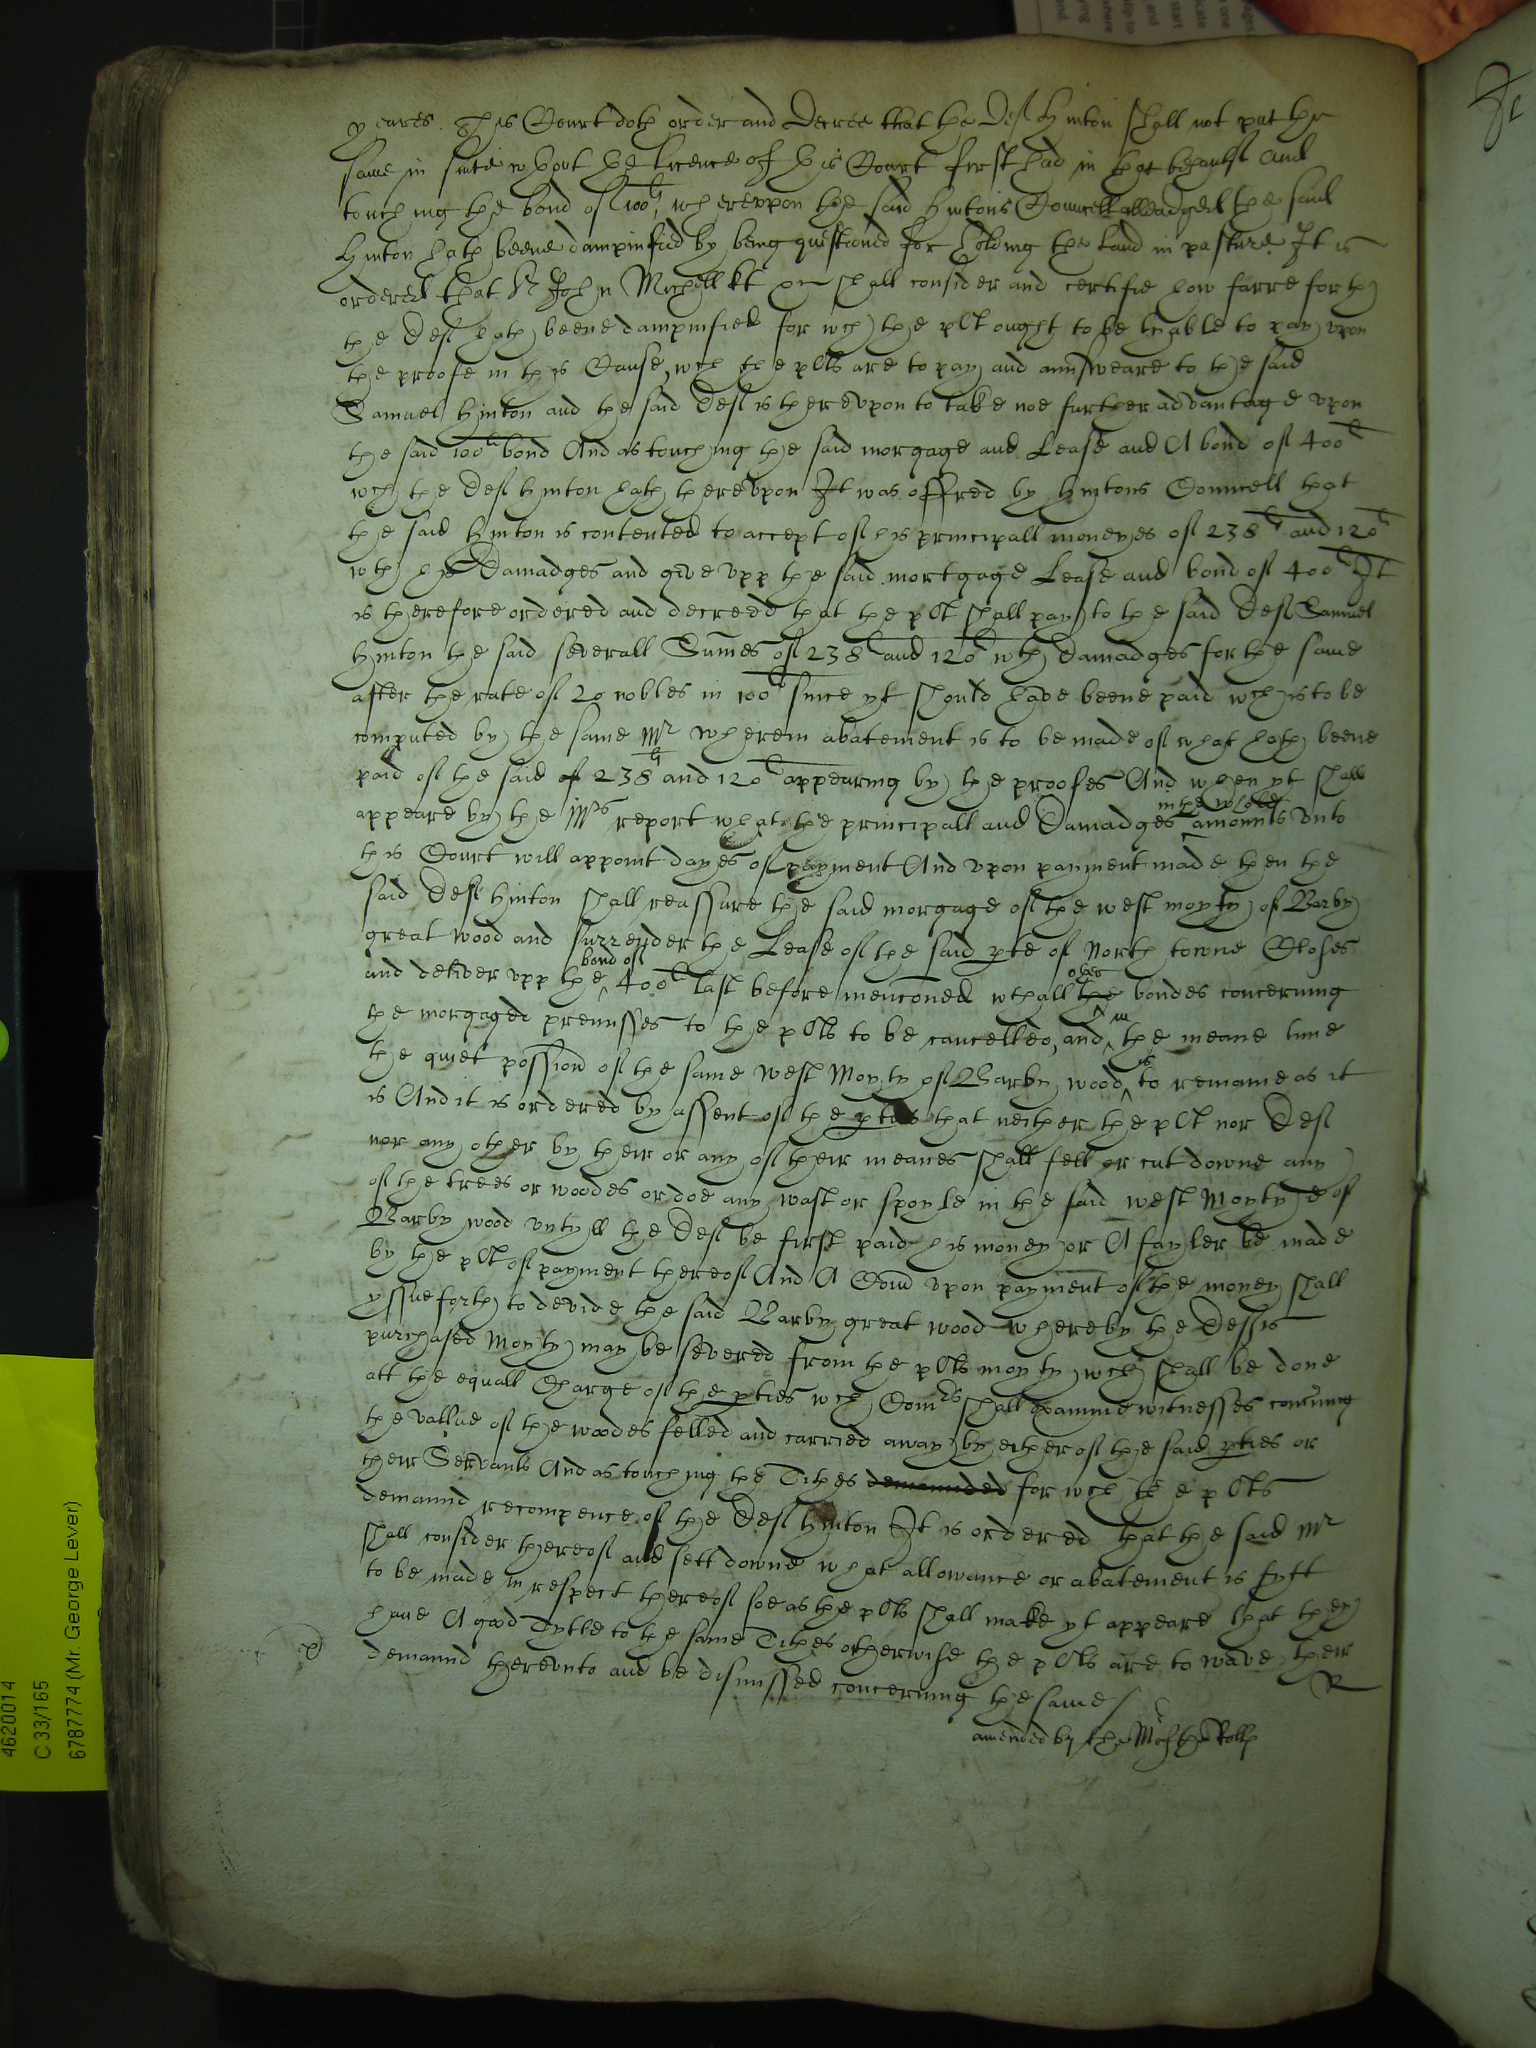 yeares. This Court doth order and decree that the Def Hinton shall not put the
same in suite wthout the licence of this Court first had in that behaulf And
touching the bond of 100li, whereuppon the said Hintons Councell alleadged the said
Hinton hath beene dampnified by being questioned for holding the land in pasture. It is
ordered that Sr John Michell kt shall consider and certifie how farre forth
the Def hath beene dampnified for wch the plt ought to be lyable to pay upon
the proofe in this Cause, wch the plts are to pay and aunsweare to the said
Samuel Hinton and the said Def is thereupon to take noe further advantage upon
the said 100li bond And as touching the said morgage and Lease and A bond of 400li
wch the Def Hinton hath thereupon It was offred by Hintons Councell that
the said Hinton is contented to accept of his principall moneyes of 238li and 120li
wth his Damadges and give upp the said mortgage Lease and bond of 400li It
is therefore ordered and decreed that the plt shall pay to the said Def Samuel
Hinton the said severall Sumes of 238li and 120li wth damadges for the same
after the rate of 20 nobles in 100li since yt should have beene paid wch is to be
computed by the same Mr wherein abatement is to be made of what hath beene
paid of the said of 238li and 120li appearing by the proofes And when yt shall
appeare by the Mrs report what the principall and Damadges in the whole amounts unto
this Court will appoint dayes of payment And upon payment made then the
said Def Hinton shall reassure the said morgage of the west moyty of Barby
great wood and surrender the Lease of the said pte of North towne Closes
and deliver upp the bond of 400li last before menconed wth all the other bondes concerning
the morgaged premisses to the plts to be cancelled, and in the meane time
the quiet possion of the same West Moyty of Barby wood is to remaine as it
is And it is ordered by assent of the pties that neither the plt nor Def
nor any other by their or any of their meanes shall fell or cut downe any
of the trees or woodes or doe any wast or spoyle in the said west Moytye of
Barby wood untyll the Def be first paid his money or A fayler be made
by the plt of payment thereof And A Com upon payment of the money shall
yssue forth to devide the said Barby great wood whereby the Deffts
purchased Moyty may be severed from the plts moyty wch shall be done
att the equall Charge of the pties wch Comrs shall examine witnesses concning
the vallue of the woodes felled and carried away by either of the said pties or
their Servants And as touching the Tithes demaunded for wch the plts
demaund recompence of the Def Hinton It is ordered that the said Mr
shall consider thereof and sett downe what allowance or abatement is fytt
to be made in respect thereof soe as the plts shall make yt appeare that they
have A good Tytle to the same Tithes otherwise the plts are to wave their
demaund thereunto and be dismissed concerning the same/
R
amended by the Mr of the Rolls
4620014
C 33/165
6787774 (Mr. George Lever)